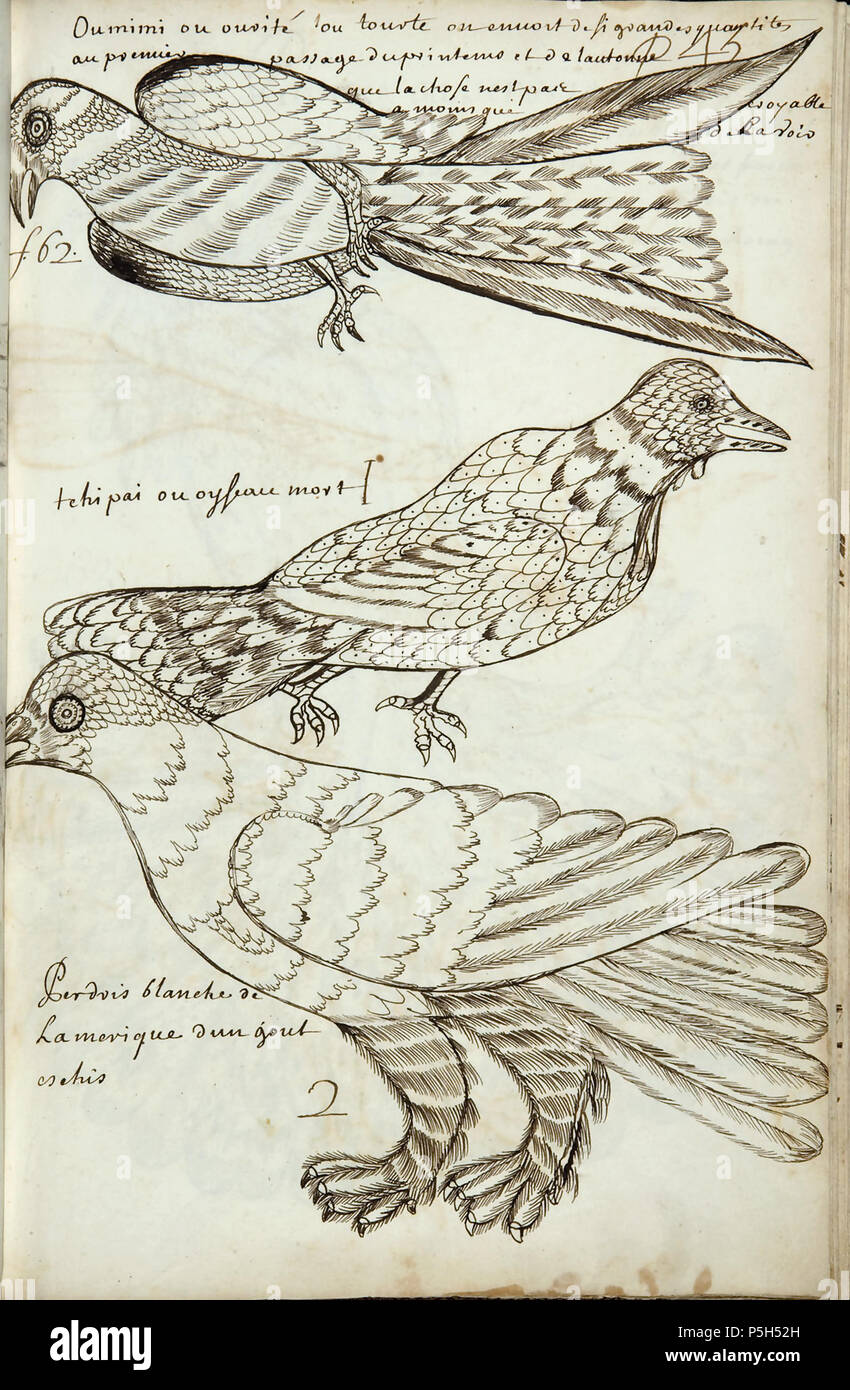 Oumimi ou ourité lou tourte on en uoit de si grandes quantites
au premier passage du printems et de lautonne P 43
que la chose nest pas croyable
a moins que de la voir
f 62.
tchipai ou oyseau mort
Perdris blanche de
Lamerique dun gout
2
alamy
a
alamy
Image ID: P5H52H
www.alamy.com